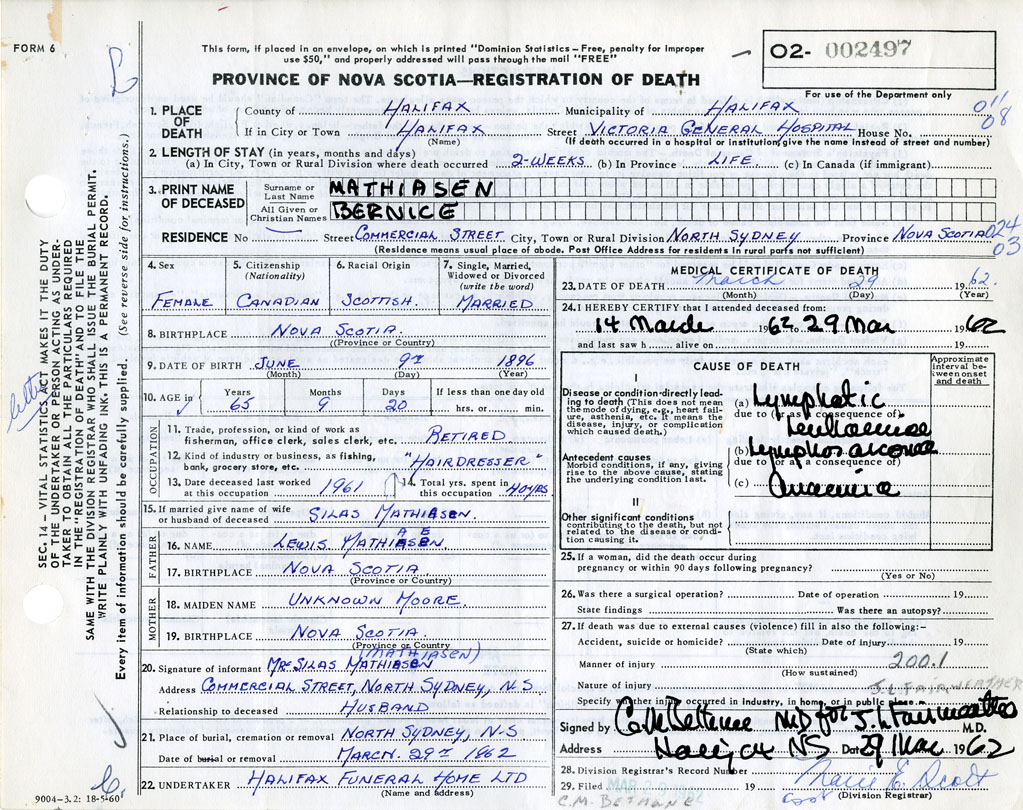 FORM 6
This form, if placed in an envelope, on which is printed "Dominion Statistics – Free, penalty for improper
use $50," and properly addressed will pass through the mail "FREE"
PROVINCE OF NOVA SCOTIA—REGISTRATION OF DEATH
O2- 002497
For use of the Department only
1. PLACE OF DEATH County of HALIFAX Municipality of HALIFAX 011
If in City or Town HALIFAX Street VICTORIA GENERAL HOSPITAL House No. 08
(Name) (If death occurred in a hospital or institution, give the name instead of street and number)
2. LENGTH OF STAY (in years, months and days)
(a) In City, Town or Rural Division where death occurred 2-WEEKS (b) In Province LIFE (c) In Canada (if immigrant)
3. PRINT NAME OF DECEASED Surname or Last Name MATHIASEN
All Given or Christian Names BERNICE
RESIDENCE No Street COMMERCIAL STREET City, Town or Rural Division NORTH SYDNEY Province NOVA SCOTIA 024
(Residence means usual place of abode. Post Office Address for residents in rural parts not sufficient) 03
4. Sex FEMALE
5. Citizenship (Nationality) CANADIAN
6. Racial Origin SCOTTISH.
7. Single, Married, Widowed or Divorced (write the word) MARRIED
8. BIRTHPLACE NOVA SCOTIA.
(Province or Country)
9. DATE OF BIRTH JUNE 9TH 1896
(Month) (Day) (Year)
10. AGE in Years 65 Months 9 Days 20 If less than one day old hrs. or min.
OCCUPATION
11. Trade, profession, or kind of work as fisherman, office clerk, sales clerk, etc. RETIRED
12. Kind of industry or business, as fishing, bank, grocery store, etc. "HAIRDRESSER"
13. Date deceased last worked at this occupation 1961
14. Total yrs. spent in this occupation 40 YRS
15. If married give name of wife or husband of deceased SILAS MATHIASEN.
FATHER
16. NAME LEWIS MATHIASEN.
17. BIRTHPLACE NOVA SCOTIA.
(Province or Country)
MOTHER
18. MAIDEN NAME UNKNOWN MOORE.
19. BIRTHPLACE NOVA SCOTIA.
(Province or Country)
(MATHIASEN)
20. Signature of informant MR SILAS MATHIASEN
Address COMMERCIAL STREET, NORTH SYDNEY, N.S
Relationship to deceased HUSBAND
21. Place of burial, cremation or removal NORTH SYDNEY, N-S
Date of burial or removal MARCH. 29TH 1962
22. UNDERTAKER HALIFAX FUNERAL HOME LTD
(Name and address)
MEDICAL CERTIFICATE OF DEATH
23. DATE OF DEATH March 29 1962.
(Month) (Day) (Year)
24. I HEREBY CERTIFY that I attended deceased from:
14 March 1962 to 29 Mar 1962
and last saw h alive on 19
CAUSE OF DEATH
Approximate interval between onset and death
I
Disease or condition directly leading to death (This does not mean the mode of dying, e.g., heart failure, asthenia, etc. It means the disease, injury, or complication which caused death.)
(a) Lymphatic
due to (or as a consequence of)
leukaemia
Antecedent causes
Morbid conditions, if any, giving rise to the above cause, stating the underlying condition last.
(b) Lymphosarcoma
due to (or as a consequence of)
(c) Anaemia
II
Other significant conditions
contributing to the death, but not related to the disease or condition causing it.
25. If a woman, did the death occur during
pregnancy or within 90 days following pregnancy?
(Yes or No)
26. Was there a surgical operation? Date of operation 19
State findings Was there an autopsy?
27. If death was due to external causes (violence) fill in also the following:–
Accident, suicide or homicide? Date of injury 19
(State which)
Manner of injury 200.1
(How sustained)
Nature of injury J. L FAIRWEATHER
Specify whether injury occurred in industry, in home, or in public place
Signed by C. M Bethune MD for J L Fairweather M.D.
Address Halifax NS Date 29 Mar 1962
28. Division Registrar's Record Number
29. Filed MAR 29 1962 19 Marie E. Scott
(Division Registrar)
C.M. BETHUNE
SEC. 14 – VITAL STATISTICS ACT MAKES IT THE DUTY
OF THE UNDERTAKER OR PERSON ACTING AS UNDER-
TAKER TO OBTAIN ALL THE PARTICULARS REQUIRED
IN THE "REGISTRATION OF DEATH" AND TO FILE THE
SAME WITH THE DIVISION REGISTRAR WHO SHALL ISSUE THE BURIAL PERMIT.
WRITE PLAINLY WITH UNFADING INK. THIS IS A PERMANENT RECORD.
Every item of information should be carefully supplied. (See reverse side for instructions.)
letter
9004-3.2: 18-5-60